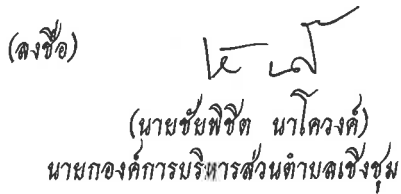 (ลงชื่อ)
(นายชัยพิชิต นาโควงค์)
นายกองค์การบริหารส่วนตำบลเชิงชุม